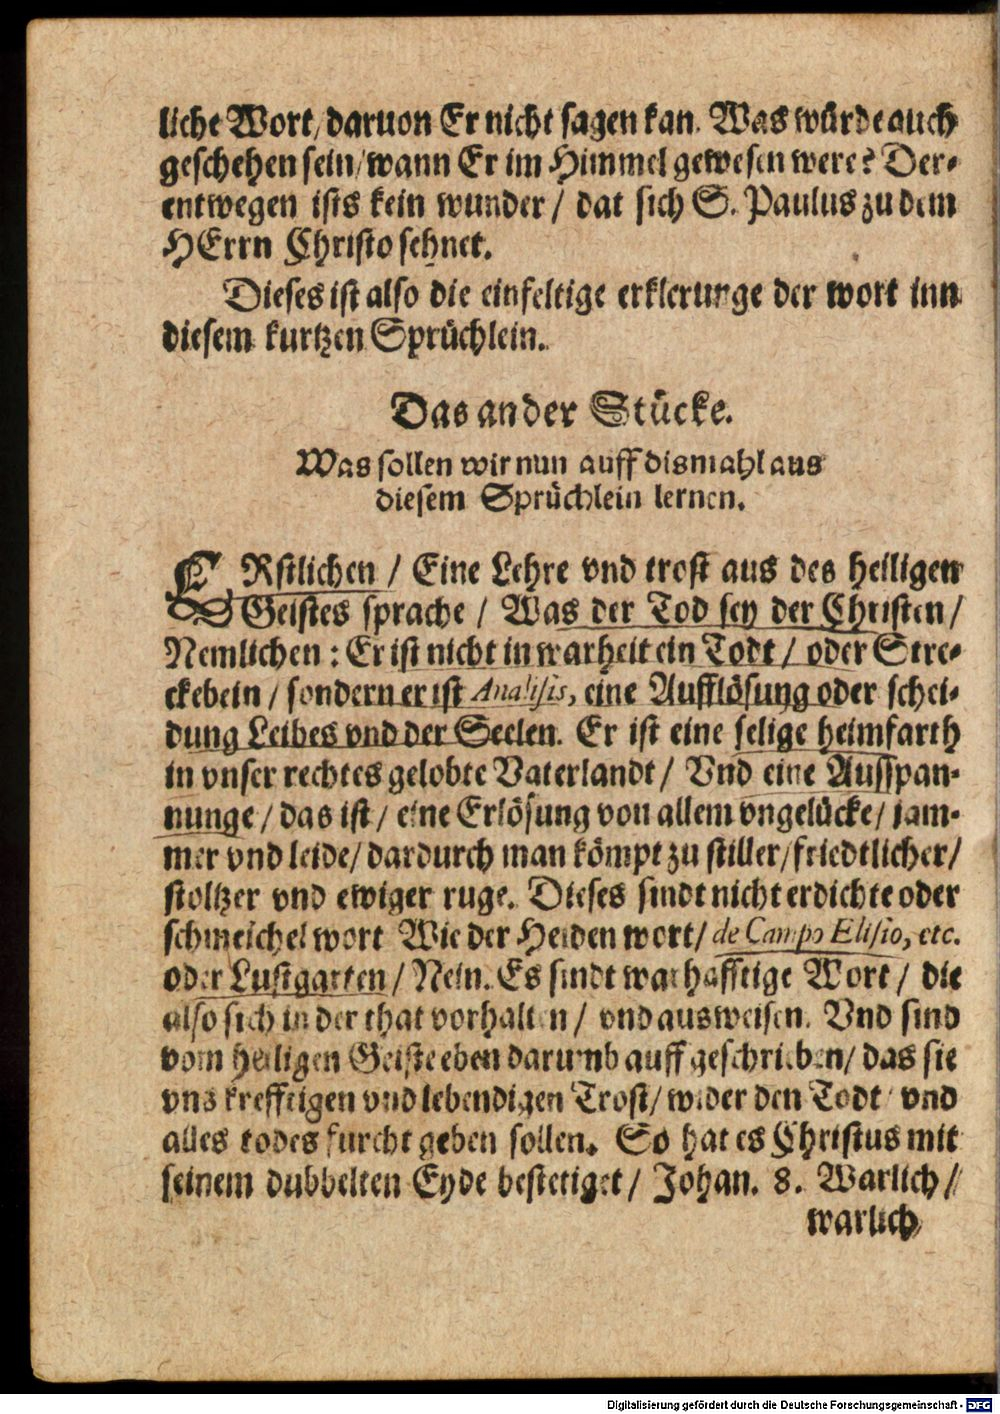 liche Wort/ daruon Er nicht sagen kan. Was würde auch
geschehen sein/ wann Er im Himmel gewesen were? Der-
entwegen ists kein wunder/ dat sich S. Paulus zu dem
HErrn Christo sehnet.
Dieses ist also die einfeltige erklerunge der wort inn
diesem kurtzen Sprüchlein.
Das ander Stücke.
Was sollen wir nun auff dismahl aus
diesem Sprüchlein lernen.
ERstlichen / Eine Lehre vnd trost aus des heiligen
Geistes sprache / Was der Tod sey der Christen /
Nemlichen : Er ist nicht in warheit ein Todt / oder Stre-
ckebein / sondern er ist Analisis, eine Aufflösung oder schei-
dung Leibes vnd der Seelen. Er ist eine selige heimfarth
in vnser rechtes gelobte Vaterlandt / Vnd eine Ausspan-
nunge / das ist / eine Erlösung von allem vngelücke / jam-
mer vnd leide/ dardurch man kömpt zu stiller/ friedtlicher/
stoltzer vnd ewiger ruge. Dieses sindt nicht erdichte oder
schmeichel wort Wie der Heiden wort/ de Campo Elisio, etc.
oder Lustgarten / Nein. Es sindt warhafftige Wort / die
also sich in der that vorhalten / vnd ausweisen. Vnd sind
vom heiligen Geiste eben darumb auff geschrieben/ das sie
vns krefftigen vnd lebendigen Trost/ wider den Todt vnd
alles todes furcht geben sollen. So hat es Christus mit
seinem dubbelten Eyde bestetiget / Johan. 8. Warlich /
warlich
Digitalisierung gefördert durch die Deutsche Forschungsgemeinschaft - DFG